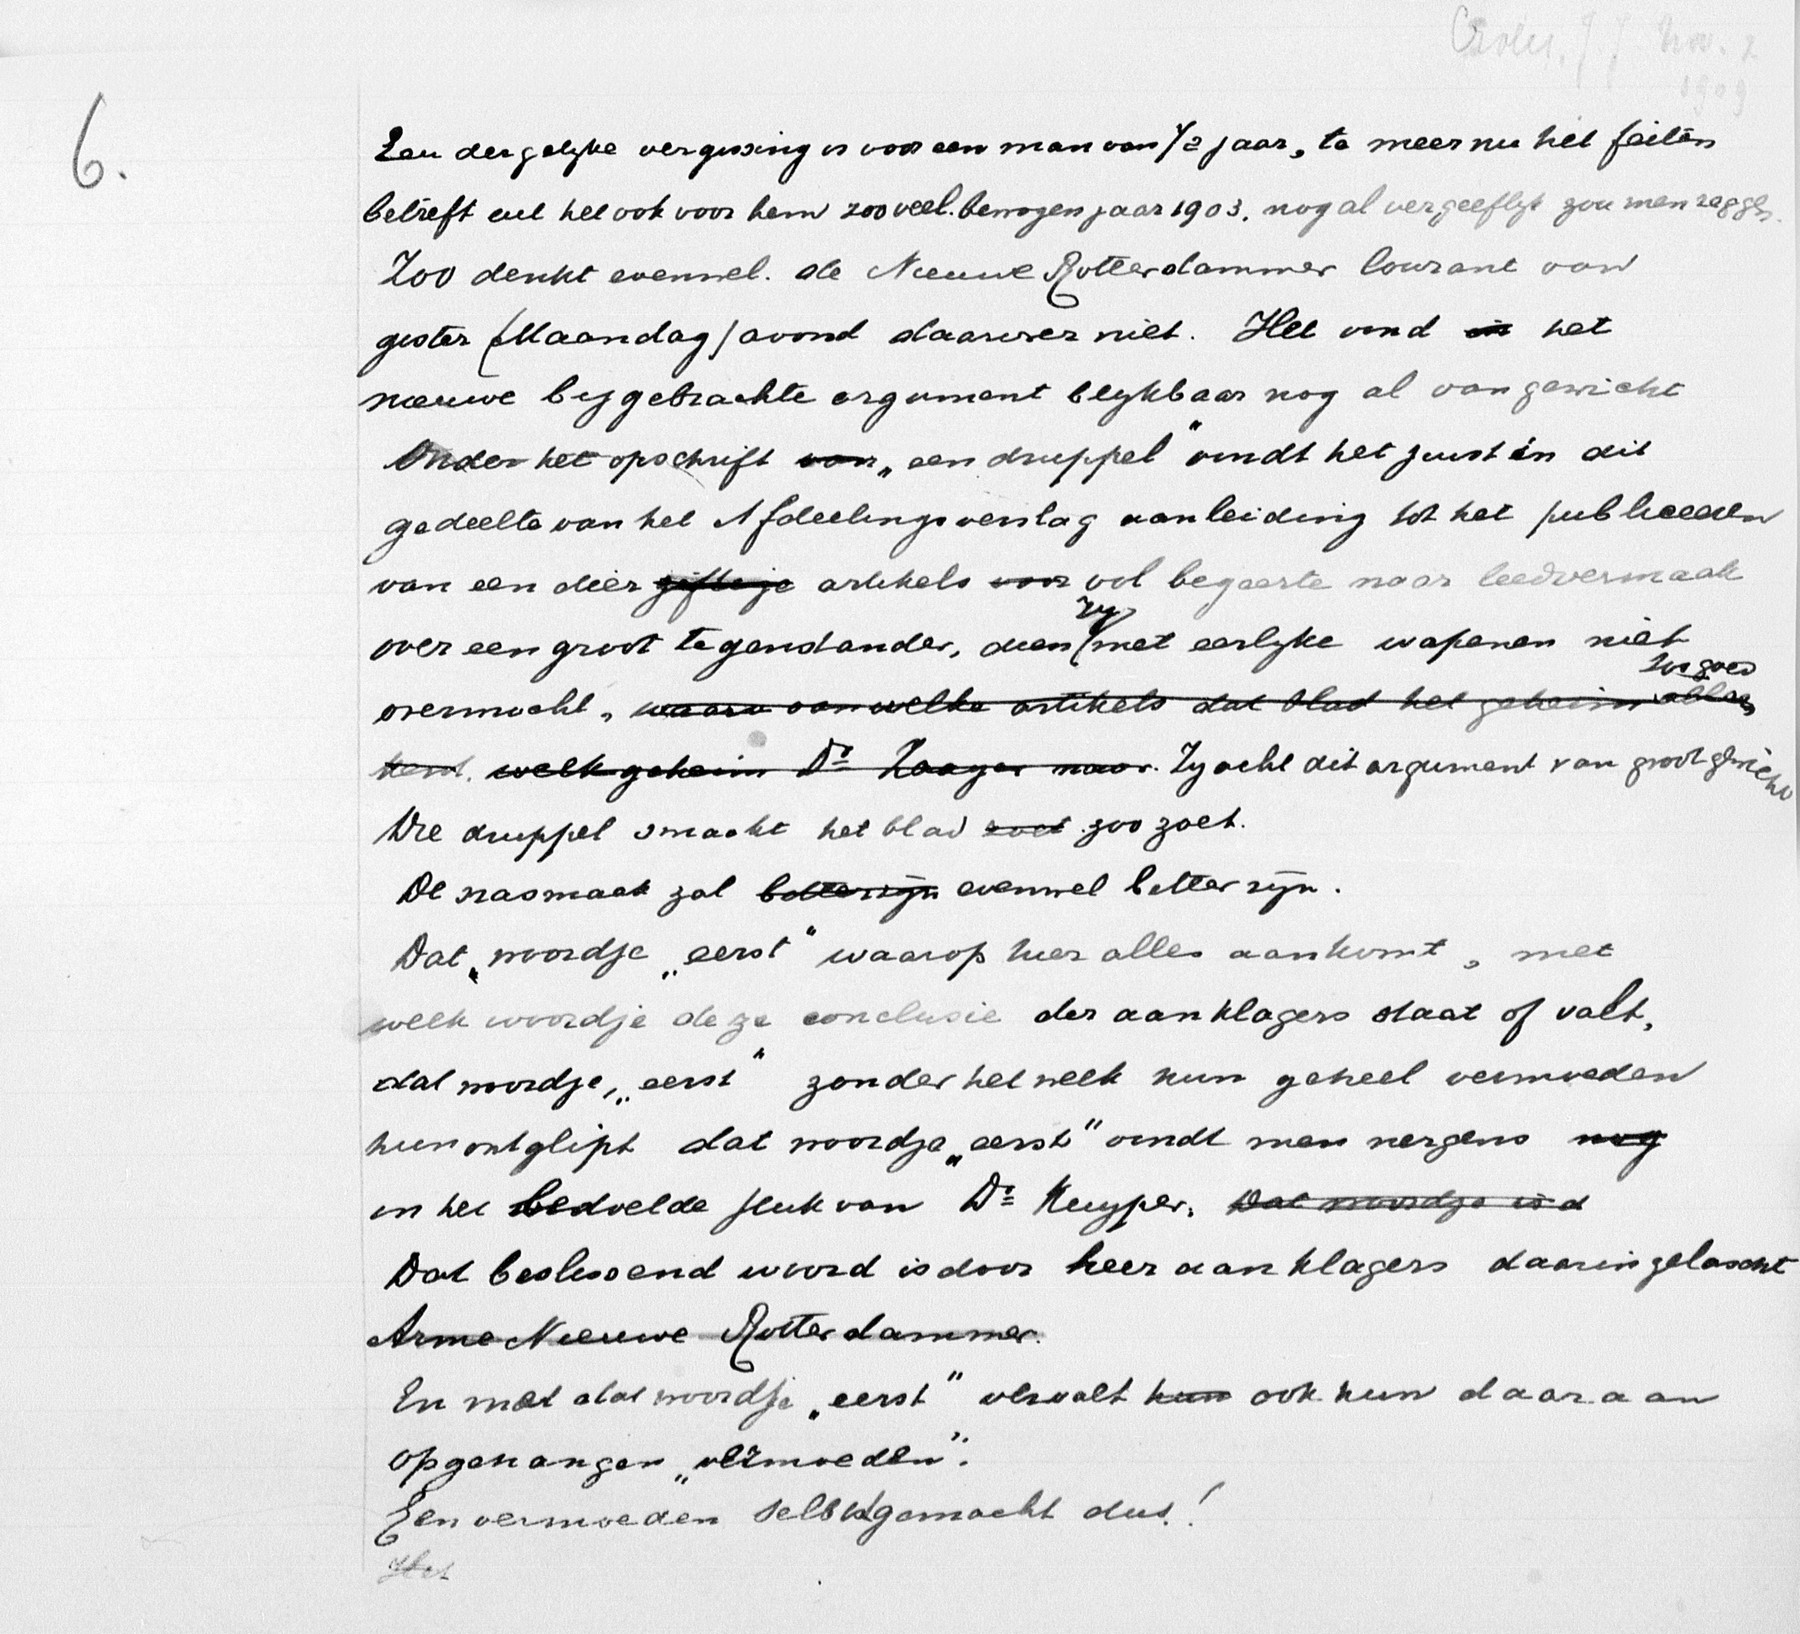 Nov. 2
1909
6.
Een dergelyke vergissing is voor een man van 72 jaar, te meer nu het feiten
betreft uit het ook voor hem zooveel bewogen jaar 1903, nog al vergeeflyk zou men zeggen.
Zoo denkt evenwel de Nieuwe Rotterdammer Courant van
gister (Maandag) avond daarover niet. Het vind in het
nieuwe bygebrachte argument blykbaar nog al van gewicht
Onder het opschrift van „een druppel" vindt het juist in dit
gedeelte van het Afdeelingsverslag aanleiding tot het publiceeren
van een dier giftige artikels voor vol begeerte naar leedvermaak
over een groot tegenstander, dien zy met eerlyke wapenen niet
overmocht, waarv van welke artikels dat blad het geheim zoo goed
kent, welk geheim Dr naar. Zy acht dit argument van groot gewicht
Die druppel smaakt het blad zoet zoo zoet.
De nasmaak zal bitter zijn evenwel bitter zijn.
Dat „woordje „eerst" waarop hier alles aankomt, met
welk woordje deze conclusie der aanklagers staat of valt,
dat woordje, „eerst" zonder hetwelk hun geheel vermoeden
hun ontglipt dat woordje „eerst" vindt men nergens nog
in het bedoelde stuk van Dr Kuyper. Dat woordje is d
Dat beslissend woord is door heer aanklagers daarin gelascht
Arme Nieuwe Rotterdammer.
En met dat woordje „eerst" vervalt hun ook hun daaraan
opgehangen „vermoeden".
Een vermoeden selbstgemacht dus!
Het